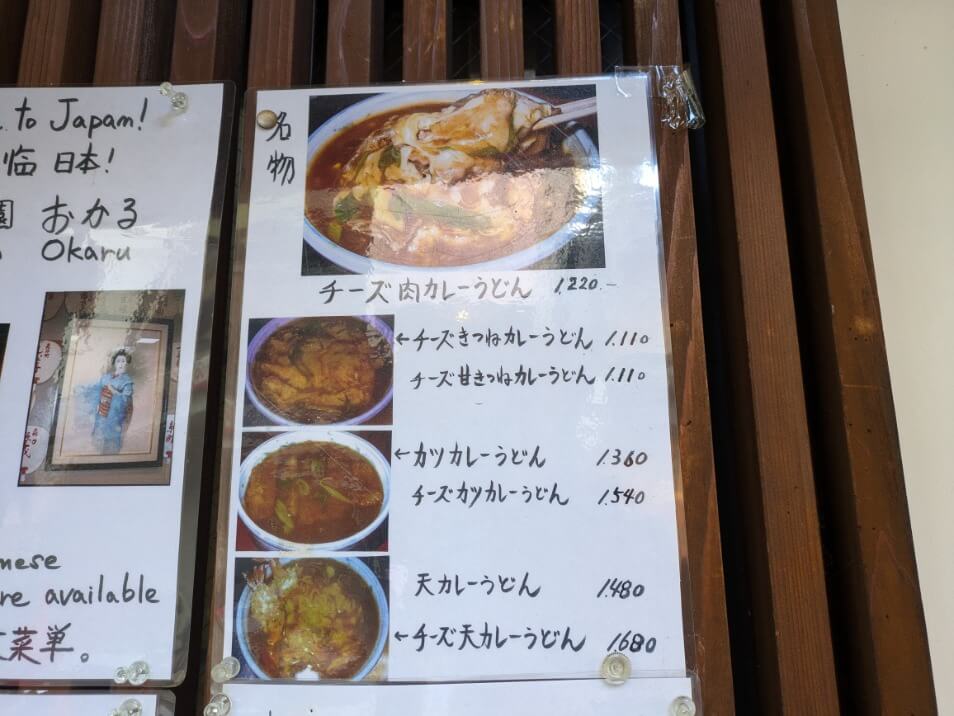 to Japam!
临 日本!
園 おかる
Okaru
nese
re available
菜单。
名物
チーズ肉カレーうどん 1.220.-
←チーズきつねカレーうどん 1.110
チーズ甘きつねカレーうどん 1.110
←カツカレーうどん 1.360
チーズカツカレーうどん 1.540
天カレーうどん 1.480
←チーズ天カレーうどん 1.680